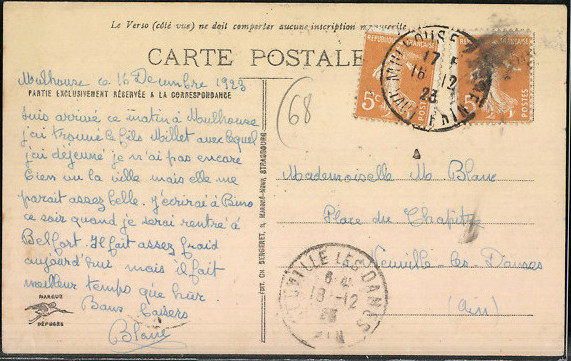 Le Verso (côté vue) ne doit comporter aucune inscription manuscrite
CARTE POSTALE
Mulhouse ce 16 Décembre 1923
PARTIE EXCLUSIVEMENT RÉSERVÉE A LA CORRESPONDANCE
suis arrivé ce matin à Mulhouse
j'ai trouvé le fils Millet avec lequel
j'ai déjeuné je n'ai pas encore
bien vu la ville mais elle me
parait assez belle. J'écrirai à Bruno
ce soir quand je serai rentré à
Belfort. Il fait assez froid
aujourd'hui mais il fait
meilleur temps que hier
Bons baisers
Blanc
MARQUE
DÉPOSÉE
EDIT. CH. BERGERET, STRASBOURG
68
REPUBLIQUE FRANÇAISE
5c
POSTES
REPUBLIQUE FRANÇAISE
5c
POSTES
MULHOUSE
17
16 12
23
Mademoiselle M Blanc
Place du Chapitre
Neuville-les-Dames
(Ain)
NEUVILLE LES DAMES
18-12
23
AIN